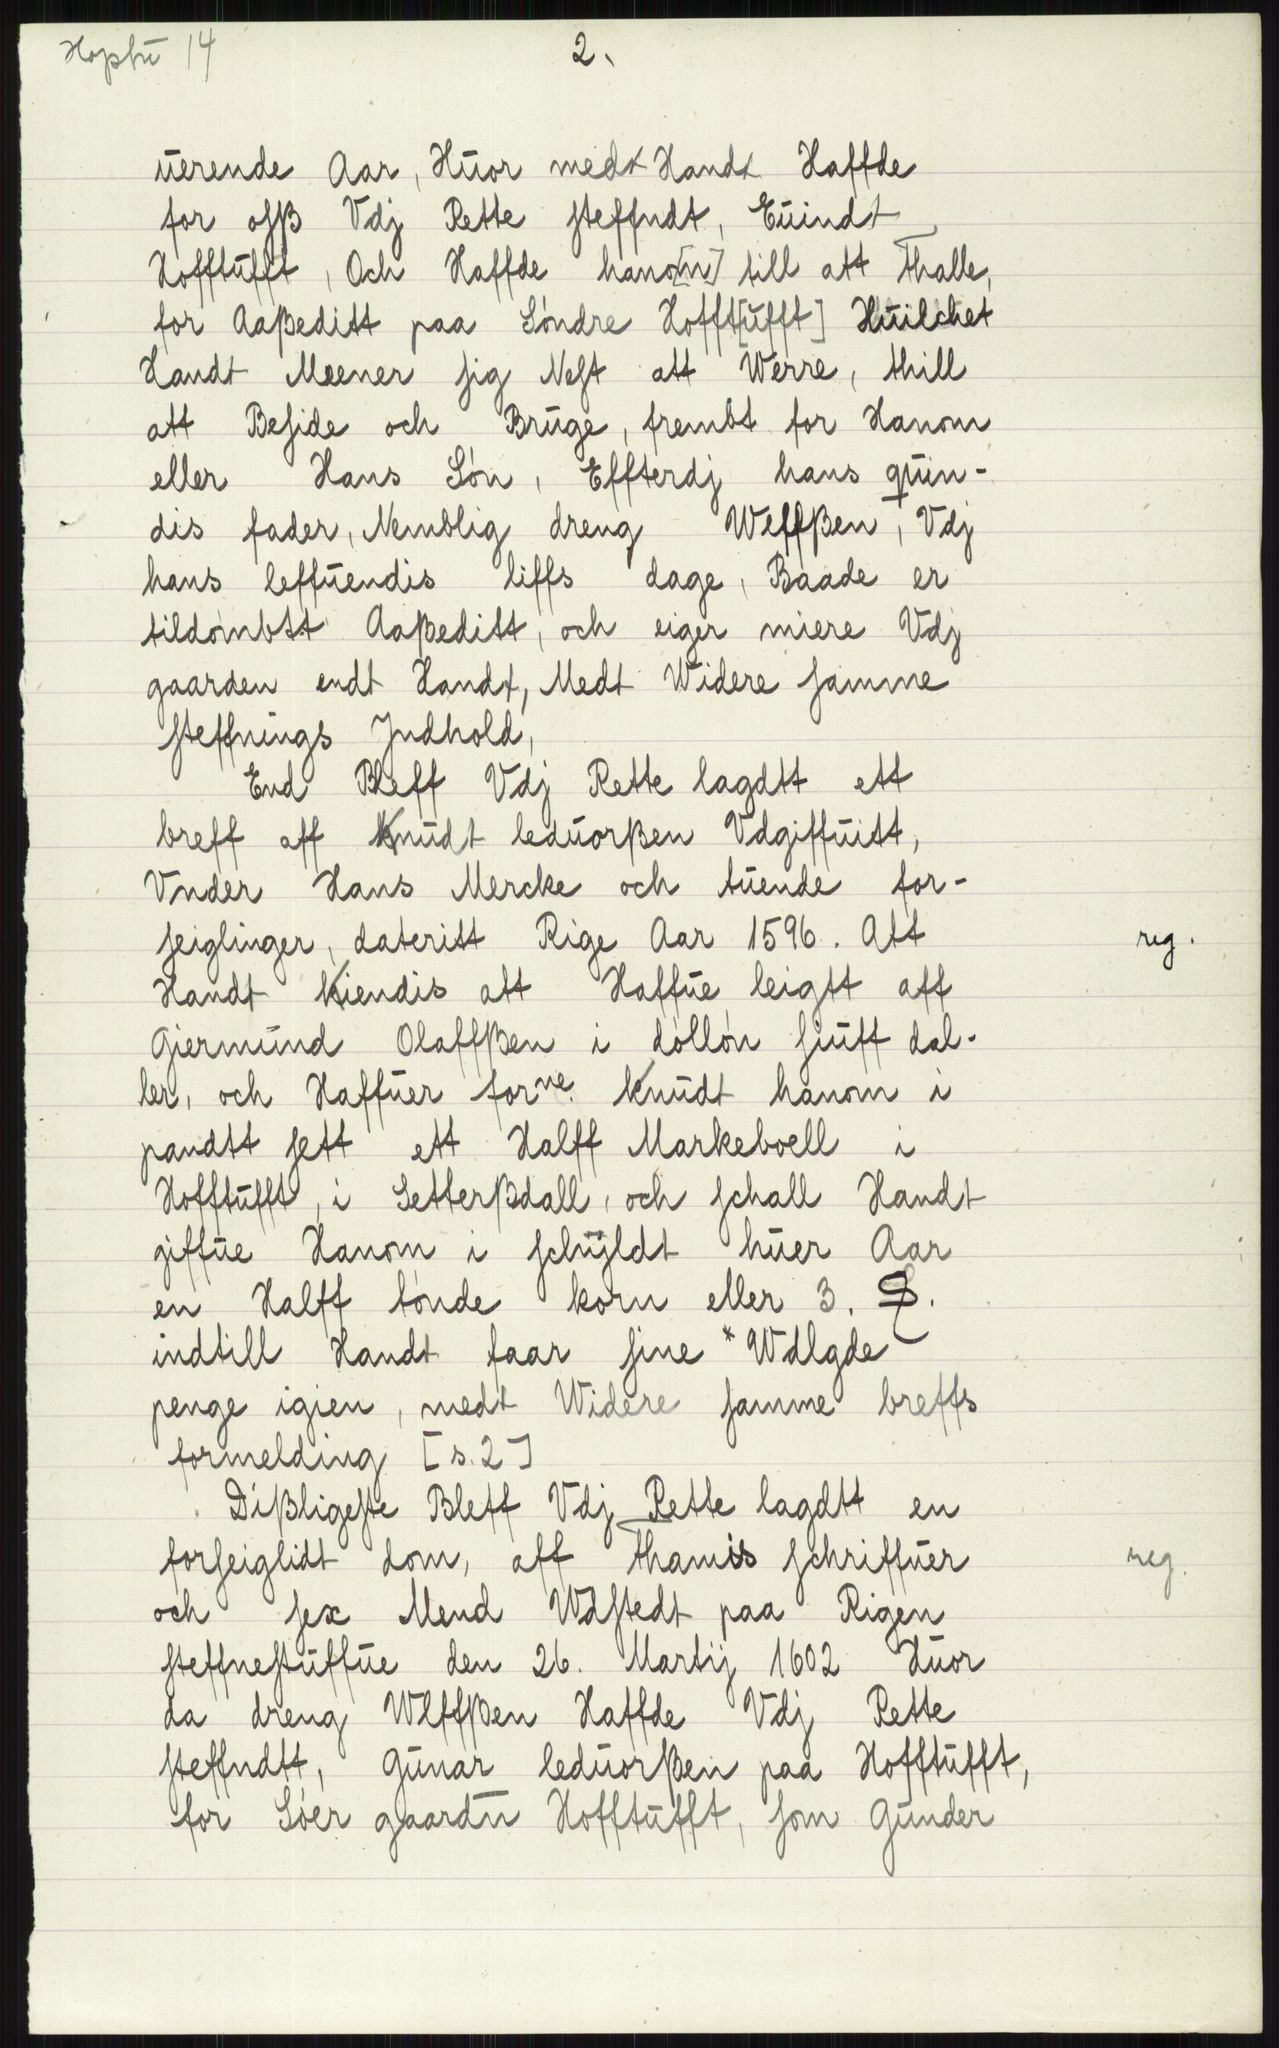 Hoptū 14
2.
uerende Aar, Huor medt Handt Haffde
for ofß Vdj Rette steffndt, Euindt
Hofftufft, Och Haffde hano[m] till att Thalle,
for Aaßeditt paa Söndre Hofft[ufft] Huilchet
Handt Meener sig Nest att Werre, thill
att Beside och Bruge, frembt for Hanom
eller Hans Sön, Effterdj hans quin-
dis fader, Nemblig dreng Wlffßen, Vdj
hans leffuendis liffs dage, Baade er
tildömbtt Aaßeditt, och eiger miere Vdj
gaarden endt Handt, Medt Widere samme
steffnings Jndhold,
End Bleff Vdj Rette lagdtt ett
breff aff Knudt leduorßen Vdgiffuitt,
Vnder Hans Mercke och tuende for-
seiglinger, dateritt Rige Aar 1596. Att
reg.
Handt kiendis att Haffue leigtt aff
Giermund Olaffßen i döllön siuff dal-
ler, och Haffuer forne. knudt hanom i
pandtt sett ett Halff Markeboell i
Hofftufft, i Setterßdall, och schall Handt
giffue Hanom i schÿldt huer Aar
en Halff tönde korn eller 3. 
indtill Handt faar sine *Wdlgde
penge igien, medt Widere samme breffs
formelding [s. 2]
Dißligeste Bleff Vdj Rette lagdtt en
forseiglidt dom, aff Thamis schriffuer
reg.
och sex Mend Wdstedt paa Rigen
steffnestuffue den 26. Martij 1602 Huor
da dreng Wlffßen Haffde Vdj Rette
steffndtt, Gunar leduorßen paa Hofftufft,
for Söer gaardn̄ Hofftufft, som Gunder